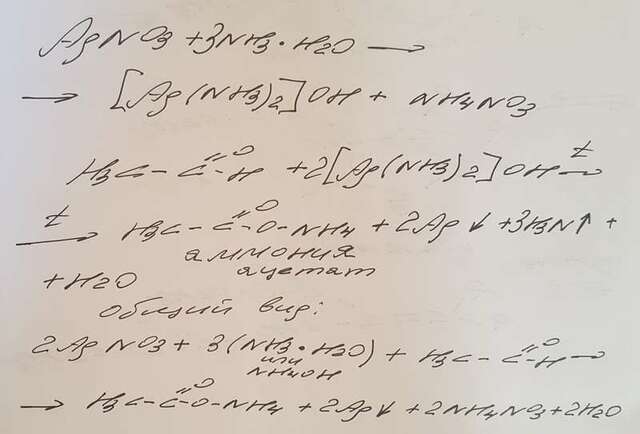 AgNO3 + 3NH3·H2O →
→ [Ag(NH3)2]OH + NH4NO3
H3C-C(=O)-H + 2[Ag(NH3)2]OH t→
t→ H3C-C(=O)-O-NH4 + 2Ag↓ + 3H3N↑ +
аммония
ацетат
+ H2O
общий вид:
2AgNO3 + 3(NH3·H2O) + H3C-C(=O)-H →
или
NH4OH
→ H3C-C(=O)-O-NH4 + 2Ag↓ + 2NH4NO3 + 2H2O